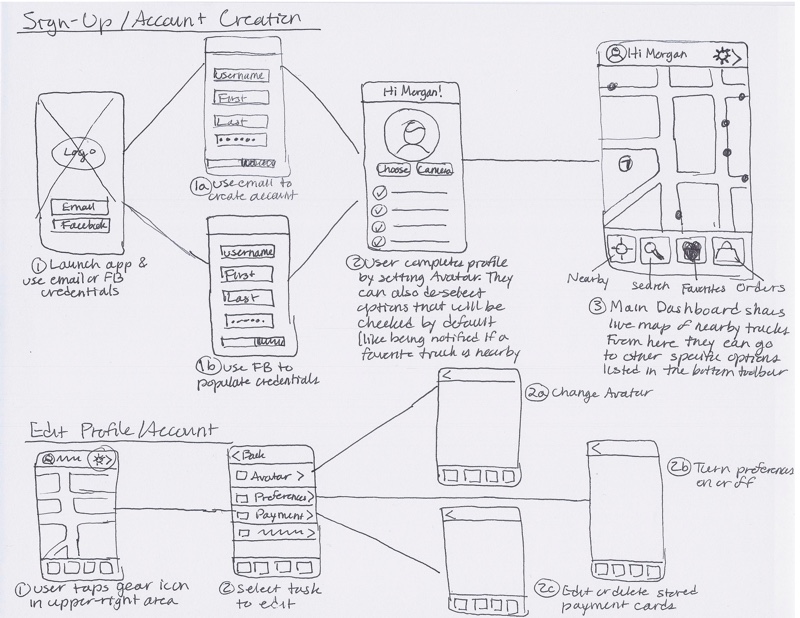 Sign-Up / Account Creation
Logo
Email
Facebook
① Launch app &
use email or FB
credentials
username
First
Last
1a use email to
create account
username
First
Last
1b use FB to
populate credentials
Hi Morgan!
Choose Camera
② User complete profile
by setting Avatar. They
can also de-select
options that will be
checked by default
(like being notified if a
favorite truck is nearby
Hi Morgan
Nearby Search Favorites Orders
③ Main Dashboard shows
live map of nearby trucks
From here they can go
to other specific options
listed in the bottom toolbar
Edit Profile/Account
① user taps gear icon
in upper-right area
< Back
Avatar >
Preferences >
Payment >
② Select task
to edit
2a Change Avatar
2b Turn preferences
on or off
2c Edit or delete stored
payment cards